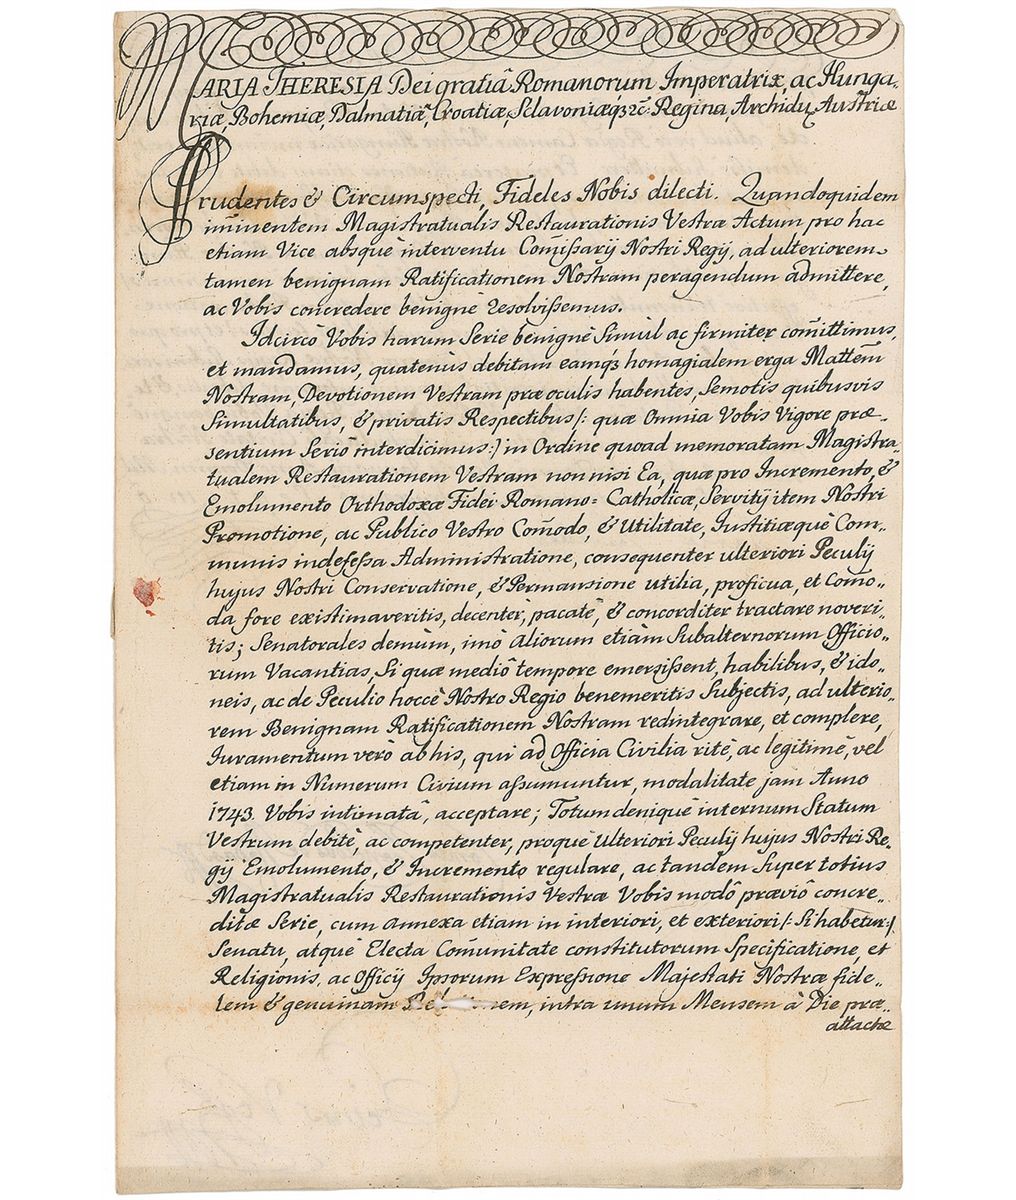 MARIA THERESIA Dei gratiâ Romanorum Imperatrix, ac Hunga-
riæ, Bohemiæ, Dalmatiæ, Croatiæ, Sclavoniæq3 &c: Regina, Archidux Austriæ
Prudentes & Circumspecti, Fideles Nobis dilecti. Quandoquidem
im̃inentem Magistratualis Restaurationis Vestræ Actum pro hac
etiam Vice absquè interventu Com̃issarij Nostri Regij, ad ulteriorem
tamen benignam Ratificationem Nostram peragendum admittere,
ac Vobis concredere benignè resolvissemus.
Idcircò Vobis harum Serie benignè Simùl ac firmiter com̃ittimus,
et mandamus, quatenùs debitam eamq3 homagialem erga Mattem̃
Nostram, Devotionem Vestram præ oculis habentes, Semotis quibusvis
Simultatibus, & privatis Respectibus /: quæ Omnia Vobis Vigore præ-
sentium Seriò interdicimus :/ in Ordine quoad memoratam Magistra-
tualem Restaurationem Vestram non nisi Ea, quæ pro Incremento, &
Emolumento Orthodoxæ Fidei Romano= Catholicæ, Servitij item Nostri
Promotione, ac Publico Vestro Com̃odo, & Utilitate, Iustitiæquè Com-
munis indefessa Administratione, consequenter ulteriori Peculij
hujus Nostri Conservatione, & Permansione utilia, proficua, et Com̃o-
da fore existimaveritis, decenter, pacatè, & concorditer tractare noveri-
tis; Senatorales demùm, imò Aliorum etiàm Subalternorum Officio-
rum Vacantias, Si quæ mediô tempore emersissent, habilibus, & ido-
neis, ac de Peculio hoccè Nostro Regio benemeritis Subjectis, ad ulterio-
rem Benignam Ratificationem Nostram redintegrare, et complere,
Iuramentum verò ab his, qui ad Officia Civilia ritè, ac legitimè, vel
etiam in Numerum Civium assumuntur, modalitate jam Anno
1743. Vobis intimatâ, acceptare; Totum deniquè internum Statum
Vestrum debitè, ac competenter, proquè Ulteriori Peculij hujus Nostri Re-
gij Emolumento, & Incremento regulare, ac tandem Super totius
Magistratualis Restaurationis Vestræ Vobis modô præviô concre-
ditæ Serie, cum annexa etiam in interiori, et exteriori /: Si habetur :/
Senatu, atquè Electa Com̃unitate constitutorum Specificatione, et
Religionis, ac Officij Ipsorum Expressione Majestati Nostræ fide-
lem & genuinam intra unum Mensem à Die præ-
attactæ